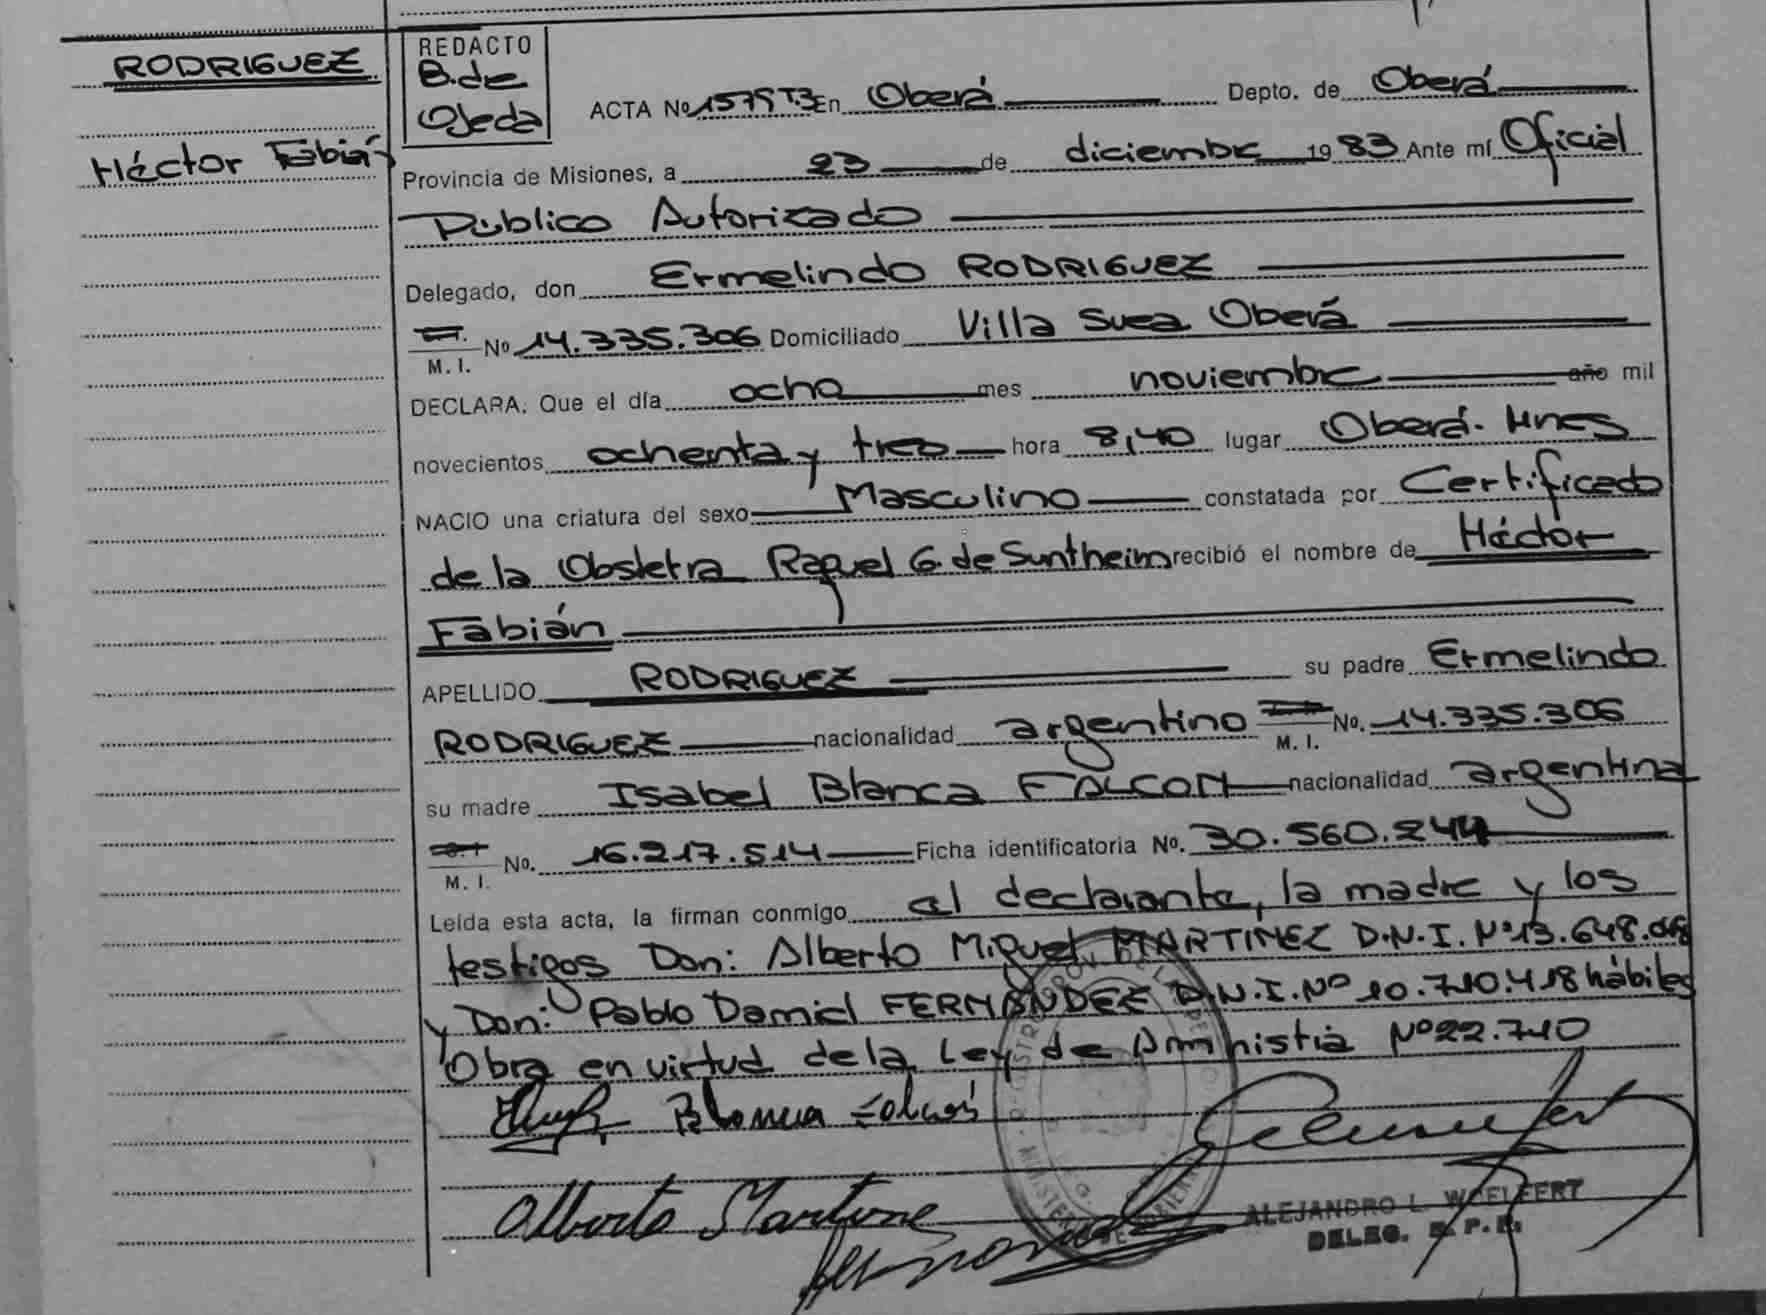 RODRIGUEZ
Héctor Fabián
REDACTO
B. de
Ojeda
ACTA Nº 1579 T.3 En Oberá Depto. de Oberá
Provincia de Misiones, a 23 de diciembre 1983 Ante mí Oficial
Público Autorizado
Delegado, don Ermelindo RODRIGUEZ
M. I. Nº 14.335.306 Domiciliado Villa Svea Oberá
DECLARA: Que el día ocho mes noviembre año mil
novecientos ochenta y tres hora 8,40 lugar Oberá. Mnes
NACIO una criatura del sexo Masculino constatada por Certificado
de la Obstetra Raquel G. de Suntheim recibió el nombre de Héctor
Fabián
APELLIDO RODRIGUEZ su padre Ermelindo
RODRIGUEZ nacionalidad argentino M. I. No. 14.335.306
su madre Isabel Blanca FALCON nacionalidad argentina
M. I. No. 16.217.514 Ficha identificatoria No. 30.560.244
Leída esta acta, la firman conmigo el declarante, la madre y los
testigos Don: Alberto Miguel MARTINEZ D.N.I. Nº 13.648.
y Don: Pablo Daniel FERNANDEZ D.N.I. Nº 10.710.418 hábiles
Obra en virtud de la Ley de Amnistia Nº 22.710
Blanca Falcon
Alberto Martinez
ALEJANDRO L. WOELFERT
DELEG. R. P. E.